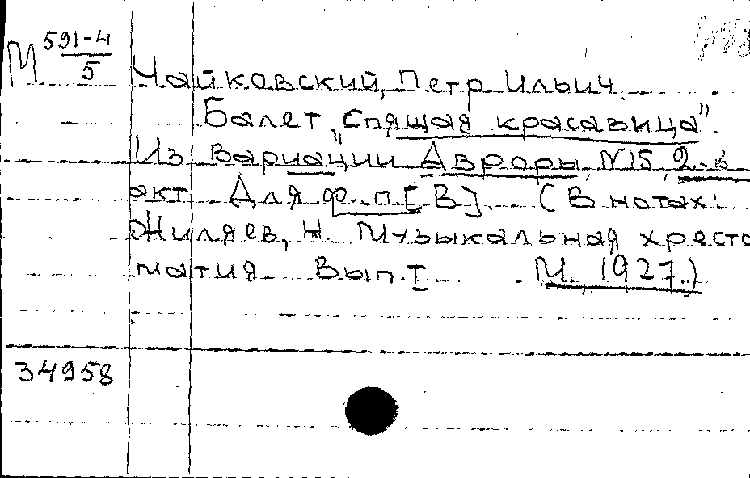 М 591-4/5
Чайковский, Петр Ильич.
Балет „Спящая красавица".
Из вариации Авроры, N15, 2-й
акт. Для ф.-п. [В]. (В нотах:
Жиляев, Н. Музыкальная хресто
матия. Вып. I. М., 1927.)
34958